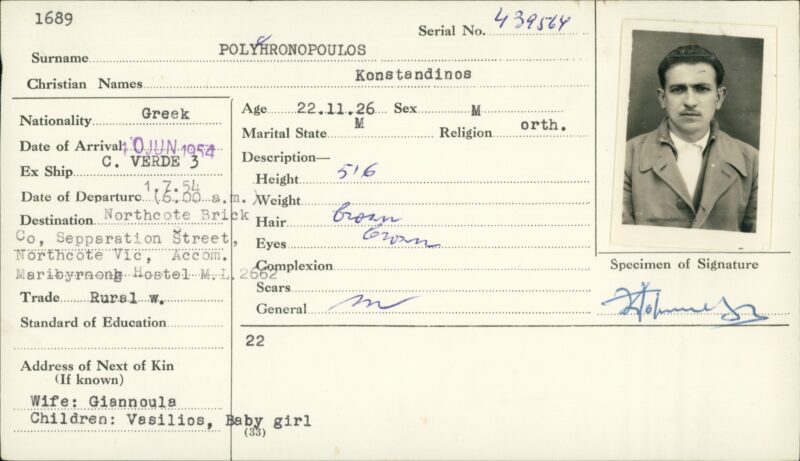 1689
Serial No. 439564
Surname POLYHRONOPOULOS
Christian Names Konstandinos
Nationality Greek
Date of Arrival 10 JUN 1954
Ex Ship C. VERDE 3
Date of Departure 1.7.54 (6.00 a.m.)
Destination Northcote Brick
Co, Sepparation Street,
Northcote Vic, Accom.
Maribyrnong Hostel M.L.2662
Trade Rural w.
Standard of Education
Address of Next of Kin
(If known)
Wife: Giannoula
Children: Vasilios, Baby girl
(33)
Age 22.11.26 Sex M
Marital State M Religion orth.
Description—
Height 5'6
Weight
Hair brown
Eyes brown
Complexion
Scars
General
22
Specimen of Signature